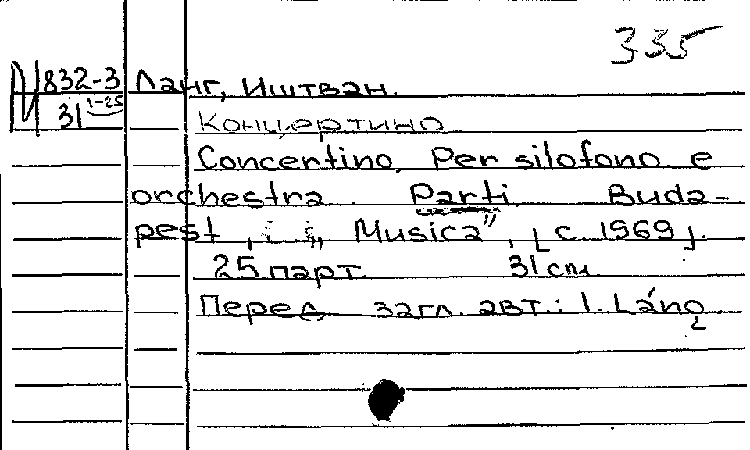 335
М832-3 Ланг, Иштван.
31 1-25
Концертино
Concertino. Per silofono e
orchestra. Parti. Buda-
pest, „Musica”, [c. 1969].
25 парт. 31 cm.
Перед загл. авт.: I. Láng